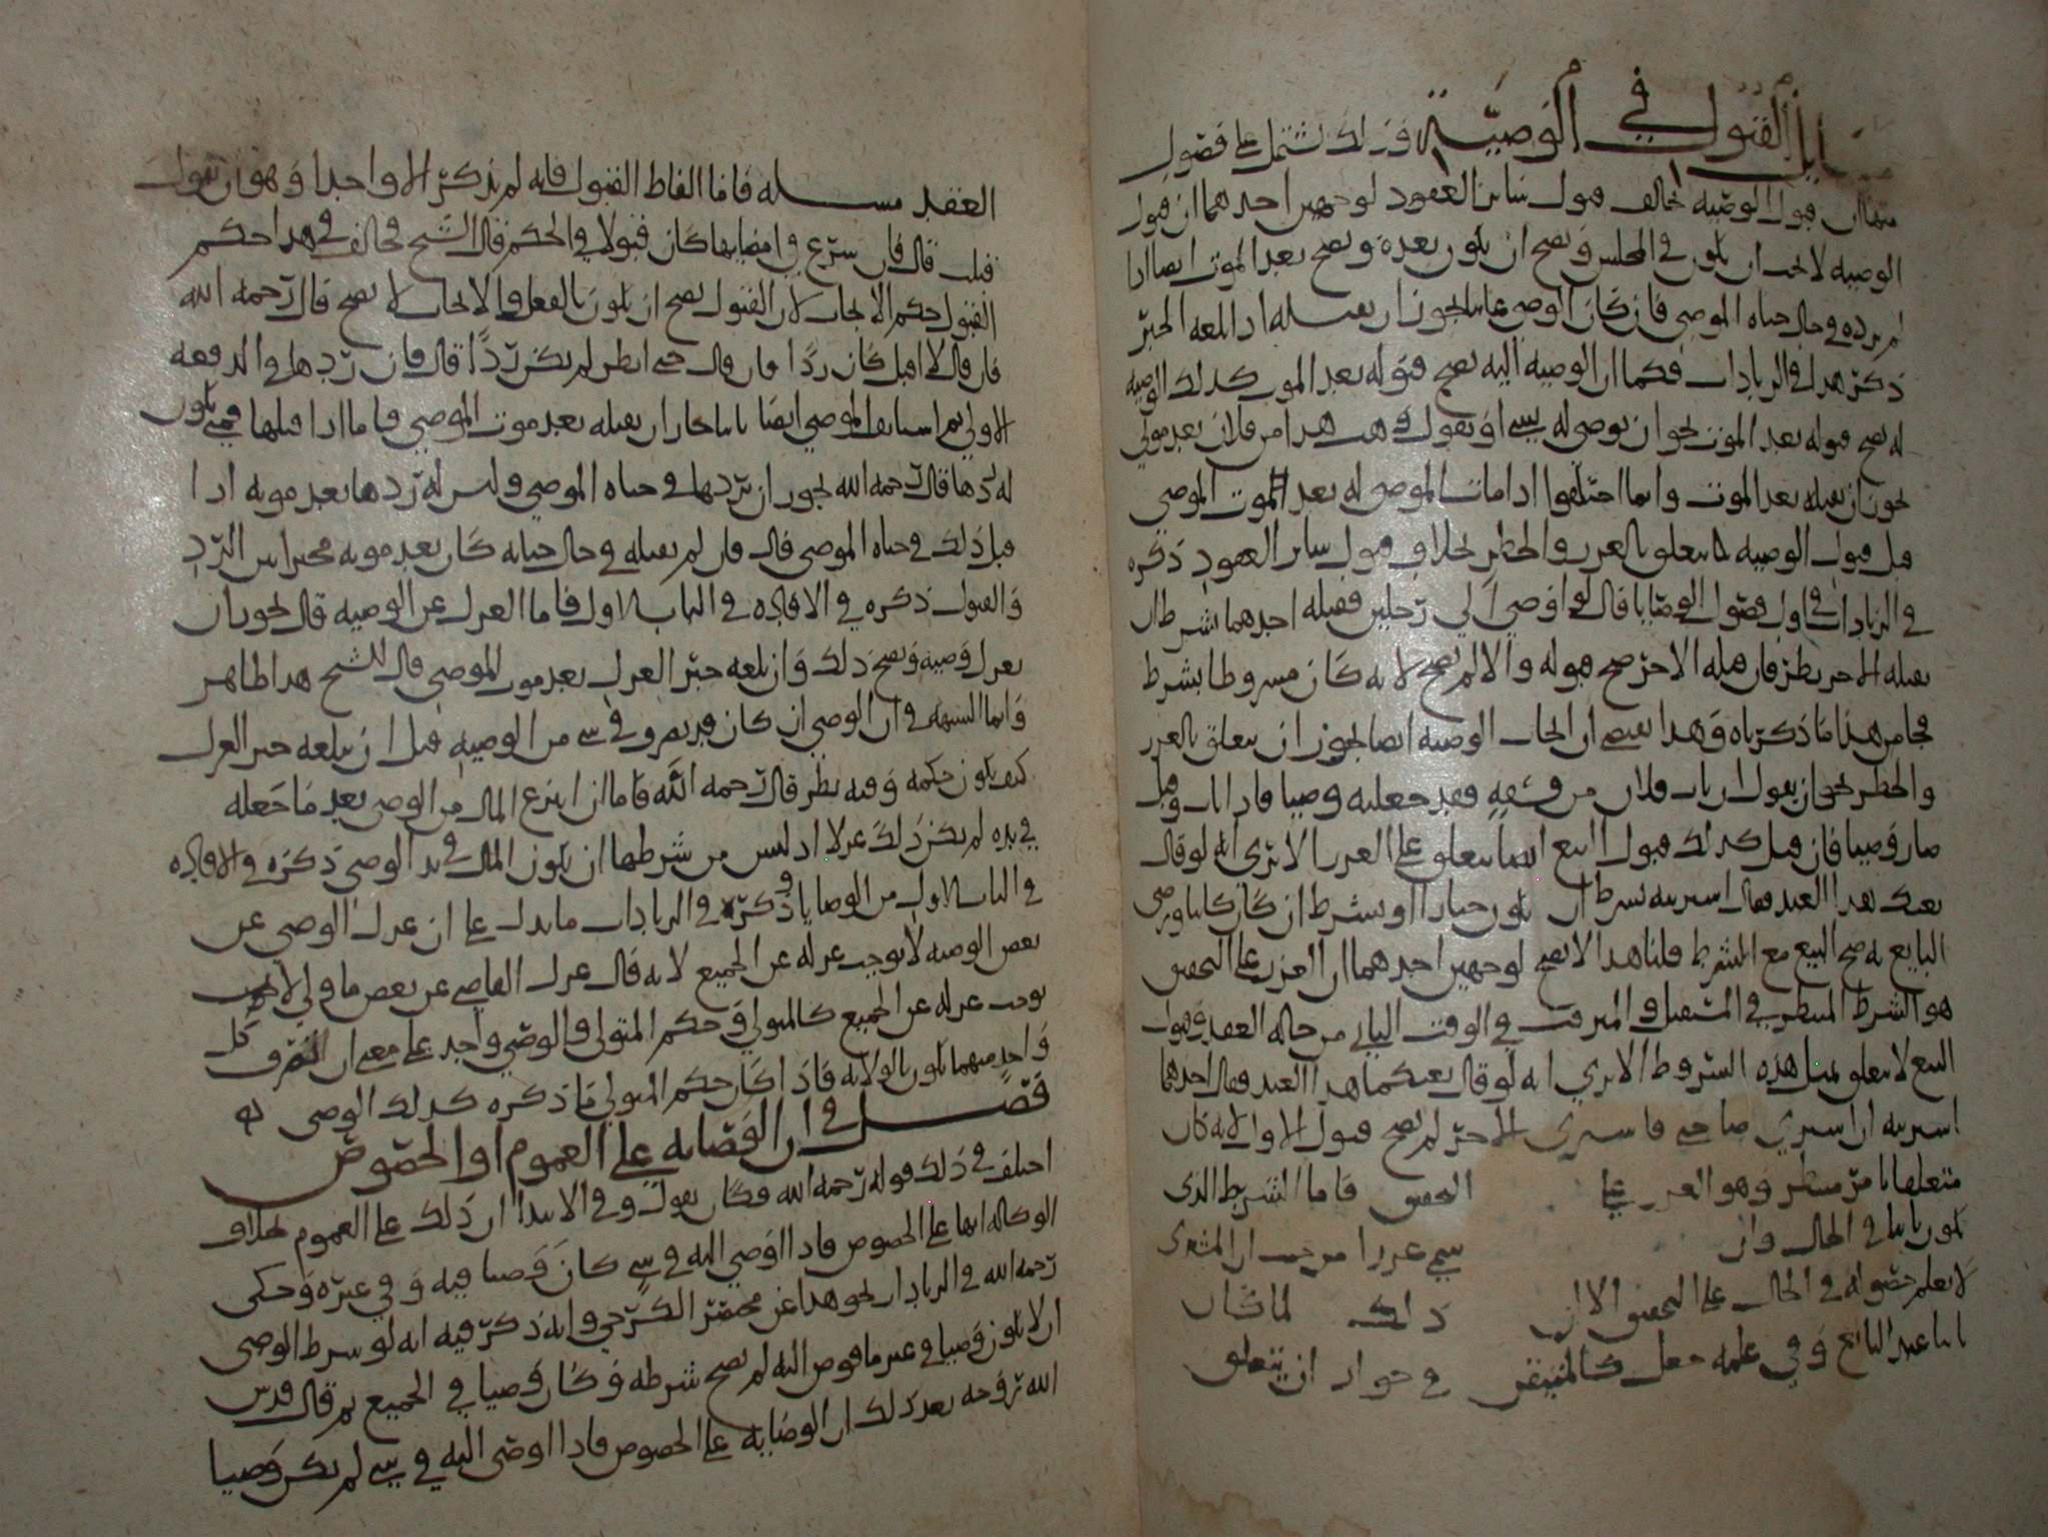 باب القبول في الوصية وذلك يشتمل على فصول
منها ان قبول الوصية يخالف قبول سائر العقود لوجهين احدهما ان قبول
الوصية لا يجب ان يكون في المجلس ويصح ان يكون بعده ويصح بعد الموت ايضا اذا
لم يرده في حال حياه الموصي فان كان الوصي غائبا يجوز ان يقبله اذا بلغه الخبر
ذكر هذا في الزيادات فكما ان الوصية اليه يصح قبوله بعد الموت كذلك الوصية
له يصح قبوله بعد الموت نحو ان يوصي له بشيء او يقول وهبت هذا من فلان بعد موتي
يجوز ان يقبله بعد الموت وانما اختلفوا اذا مات الموصى له بعد الموت الموصي
قبل قبول الوصية يتعلق بالغرر والخطر بخلاف قبول سائر العقود ذكره
في الزيادات في اول فصول الوصايا قال لو اوصي الي رجلين فقبله احدهما بشرط ان
يقبله الاخر نظر فان قبله الاخر صح قبوله والا لم يصح لانه كان مشروطا بشرط
هذا ما ذكرناه وهذا يقتضي ان ايجاب الوصية ايضا يجوز ان يتعلق بالغرر
والخطر نحو ان يقول ان تاب فلان من فسقه فقد جعلته وصيا فاذا تاب وقبل
صار وصيا فان قيل كذلك قبول البيع ايضا يتعلق على الغرر الا ترى انه لو قال
بعتك هذا العبد فقال اشتريته بشرط ان يكون خبازا او بشرط ان كان كاتبا ورضي
البايع به صح البيع مع الشرط قلنا هذا لا يصح لوجهين احدهما ان الغرر على التحقيق
هو الشرط المنتظر في المستقبل والمترقب في الوقت الثاني من حاله العقد وقبول
البيع لا يتعلق بمثل هذه الشروط الا ترى انه لو قال بعتكما هذا العبد فقال احدهما
اشتريته ان اشترى صاحبي فاشترى الاخر لم يصح قبول الاول لانه كان
متعلقا بامر منتظر وهو الغرر على التحقيق فاما الشرط الذي
يكون ثابتا في الحال وان سمي غررا من حيث ان المشتري
لا يعلم حصوله في الحال على التحقيق الا ان ذلك لما كان
ثابتا عند البائع وفي علمه جعل كالمتيقن في جواز ان يتعلق
العقد مسله فاما الفاظ القبول فانه لم يذكر الا واحدا وهو ان يقول
قبلت قال فان شرع في امضايها كان قبولا في الحكم قال الشيخ يخالف في هذا حكم
القبول حكم الايجاب لان القبول يصح ان يكون بالفعل والايجاب لا يصح قال رحمه الله
فان قال لا اقبل كان ردا فان قال حتى انظر لم يكن ردا قال فان ردها في الدفعه
الاولى ثم الموصي ايضا ثانيا جاز ان يقبله بعد موت الموصي فاما اذا قبلها فمتى يكون
له ردها قال رحمه الله يجوز ان يردها في حياه الموصي وليس له ردها بعد موته اذا
قبل ذلك في حياه الموصي قال فان لم يقبله في حال حياته كان بعد موته مخيرا بين الرد
والقبول ذكره في الافاده في الباب الاول فاما العزل عن الوصيه قال يجوز ان
يعزل وصيه ويصح ذلك وان بلغه خبر العزل بعد موت الموصي قال الشيخ هذا ظاهر
وانما الشبهه في ان الوصي ان كان قد تصرف في شي من الوصيه قبل ان يبلغه خبر العزل
كيف يكون حكمه وفيه نظر قال رحمه الله فاما ان انتزع المال من الوصي بعد ما جعله
في يده لم يكن ذلك عزلا اذ ليس من شرطها ان يكون المال في يد الوصي ذكره في الافاده
في الباب الاول من الوصايا وذكر في الزيادات ما يدل على ان عزل الوصي عن
بعض الوصيه لا يوجب عزله عن الجميع لانه قال عزل القاضي عن بعض ما ولي لا يجب
يوجب عزله عن الجميع كالمتولي وحكم المتولي والوصي واحد على معنى ان التصرف كل
واحد منهما يكون بالولايه فاذا كان حكم المتولي ما ذكره كذلك الوصي
فصل في ان الوصايه على العموم او الخصوص
اختلف في ذلك قوله رحمه الله فكان يقول في الابتدا ان ذلك على العموم بخلاف
الوكاله انها على الخصوص فاذا اوصى اليه في شي كان وصيا فيه وفي غيره وحكى
رحمه الله في الزيادات نحو هذا عن مختصر الكرخي وانه ذكر فيه انه لو شرط الوصي
ان لا يكون وصيا في غير ما فوض اليه لم يصح شرطه وكان وصيا في الجميع ثم قال قدس
الله روحه بعد ذلك ان الوصايه على الخصوص فاذا اوصى اليه في شي لم يكن وصيا